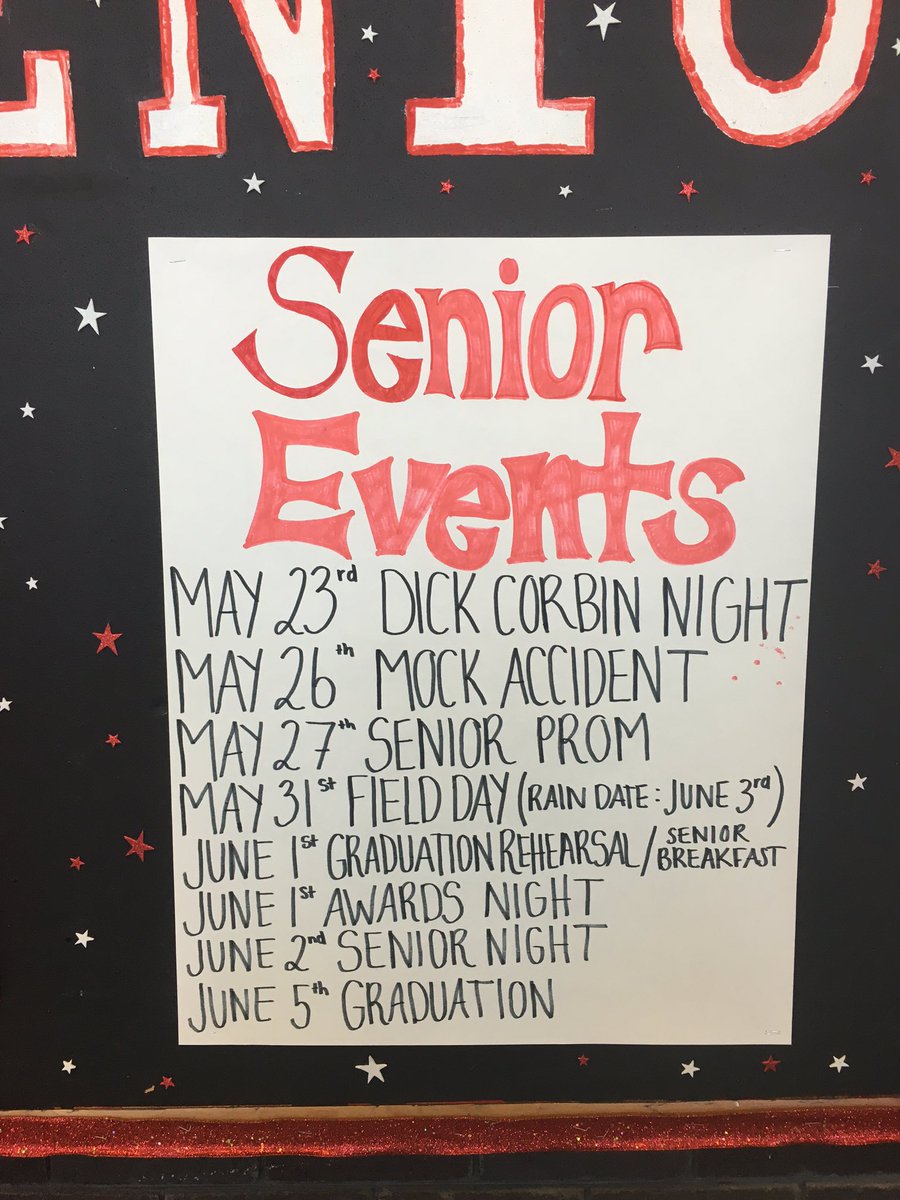 ENIO
Senior
Events
MAY 23rd DICK CORBIN NIGHT
MAY 26th MOCK ACCIDENT
MAY 27th SENIOR PROM
MAY 31st FIELD DAY (RAIN DATE: JUNE 3rd)
JUNE 1st GRADUATION REHEARSAL/SENIOR BREAKFAST
JUNE 1st AWARDS NIGHT
JUNE 2nd SENIOR NIGHT
JUNE 5th GRADUATION